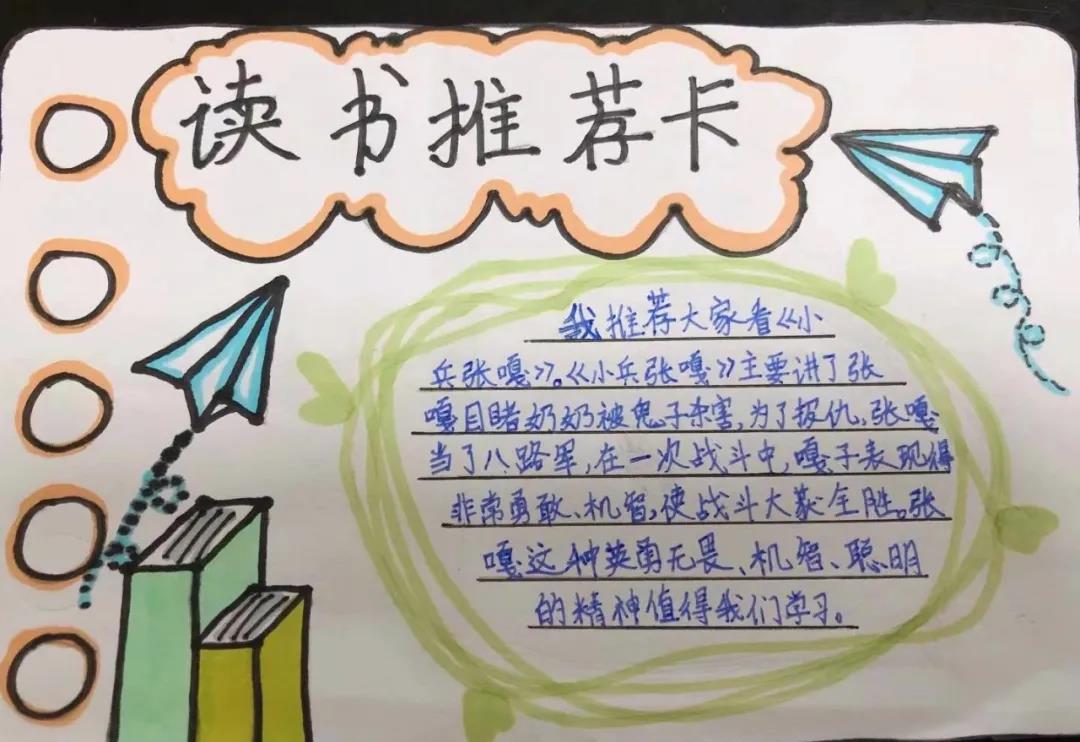 读书推荐卡
我推荐大家看《小
兵张嘎》。《小兵张嘎》主要讲了张
嘎目睹奶奶被鬼子杀害,为了报仇,张嘎
当了八路军,在一次战斗中,嘎子表现得
非常勇敢、机智,使战斗大获全胜。张
嘎这种英勇无畏、机智、聪明
的精神值得我们学习。